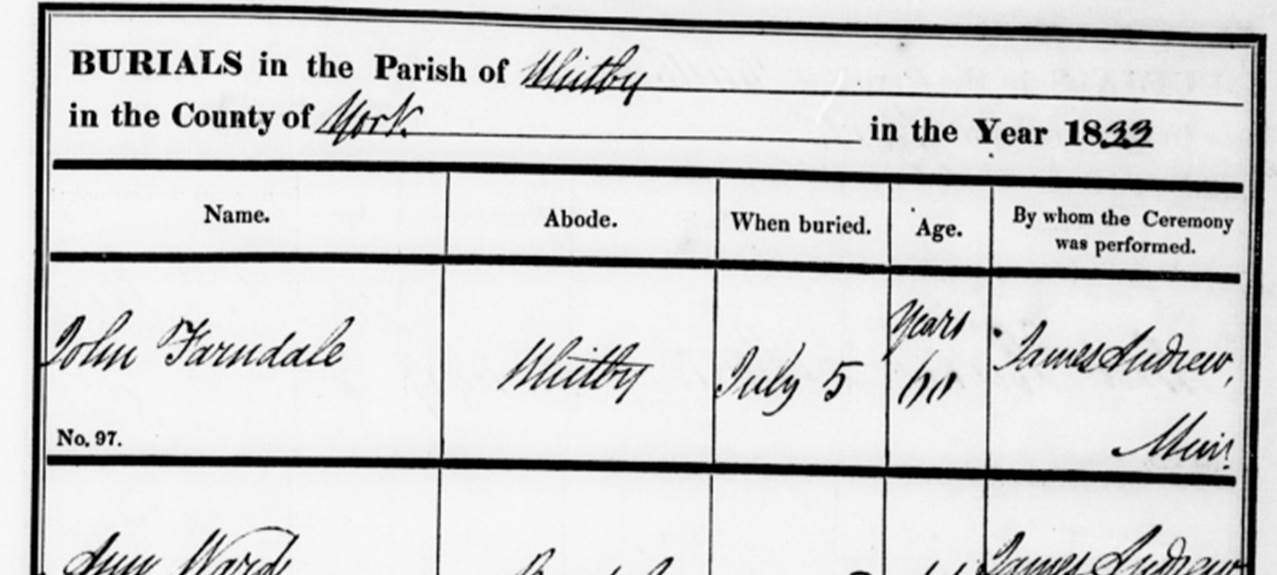 BURIALS in the Parish of Whitby
in the County of York in the Year 1833
Name. Abode. When buried. Age. By whom the Ceremony was performed.
Years
John Farndale Whitby July 5 James Andrew,
No. 97.
Ann Ward James Andrew